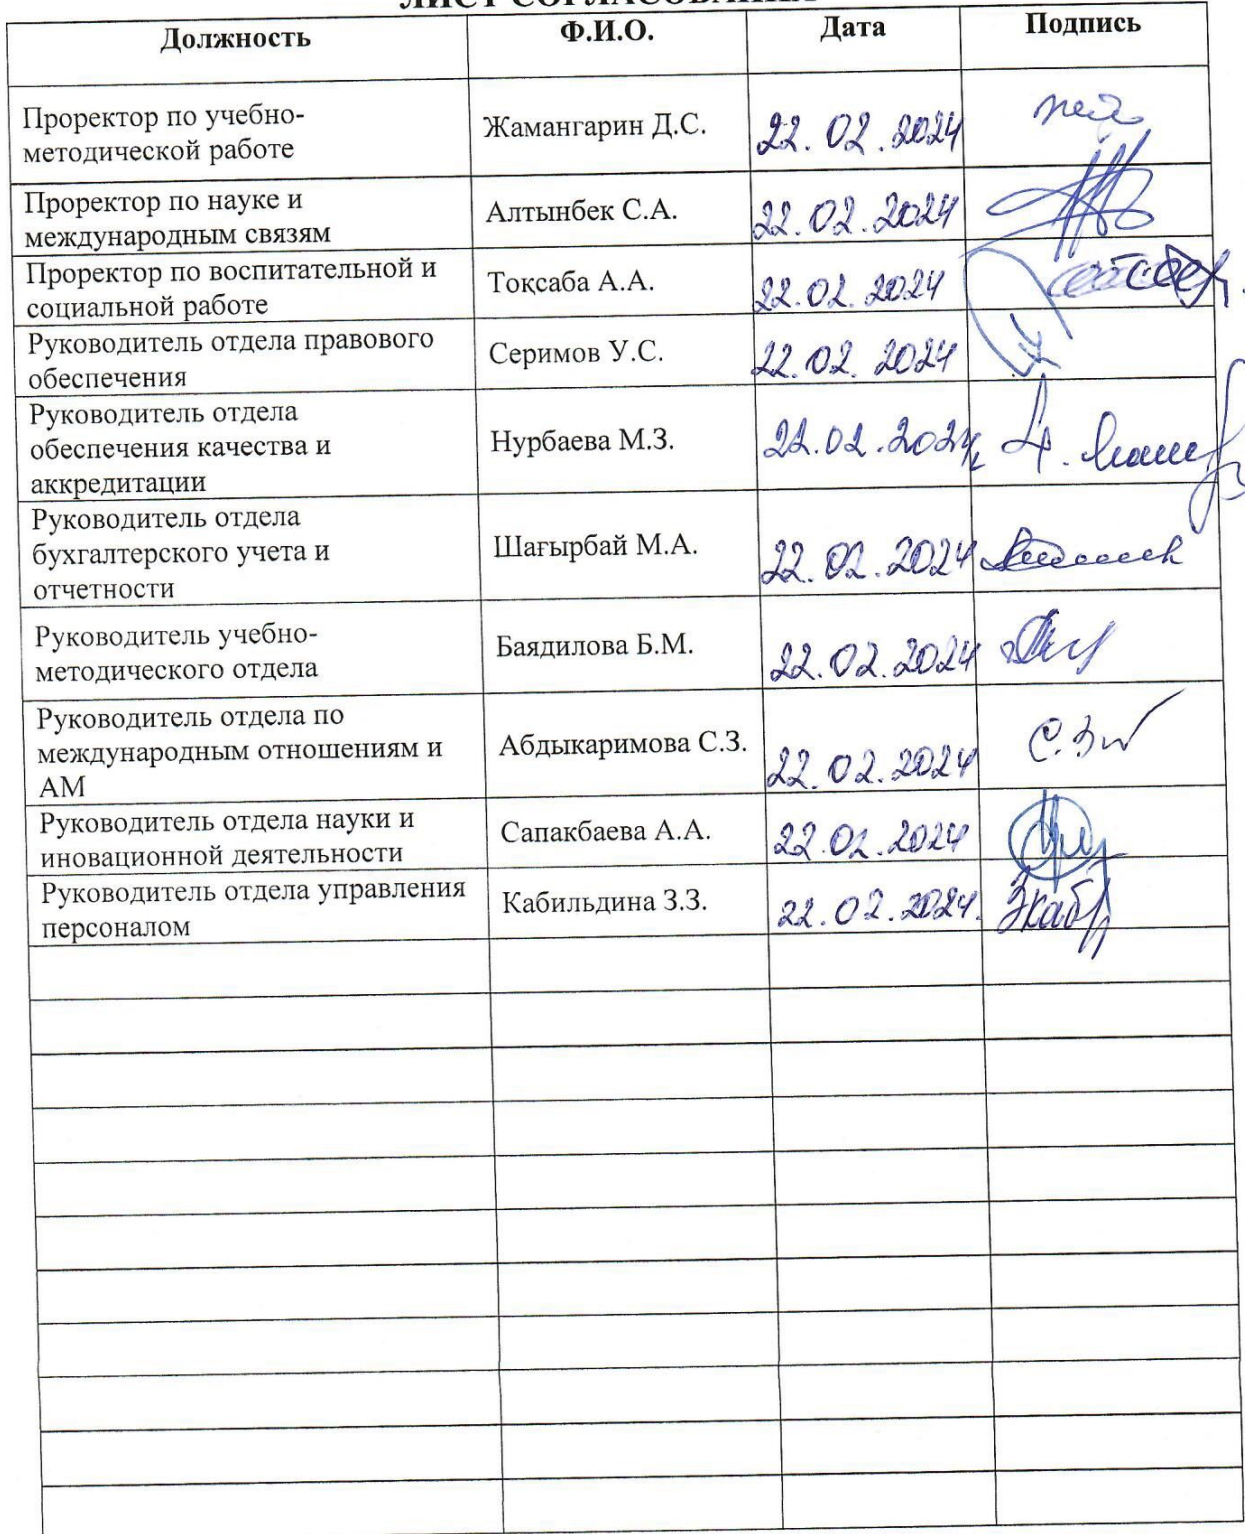 ЛИСТ СОГЛАСОВАНИЯ
Должность Ф.И.О. Дата Подпись
Проректор по учебно-
методической работе
Жамангарин Д.С. 22.02.2024
Проректор по науке и
международным связям
Алтынбек С.А. 22.02.2024
Проректор по воспитательной и
социальной работе
Тоқсаба А.А. 22.02.2024
Руководитель отдела правового
обеспечения
Серимов У.С. 22.02.2024
Руководитель отдела
обеспечения качества и
аккредитации
Нурбаева М.З. 22.02.2024
Руководитель отдела
бухгалтерского учета и
отчетности
Шағырбай М.А. 22.02.2024
Руководитель учебно-
методического отдела
Баядилова Б.М. 22.02.2024
Руководитель отдела по
международным отношениям и
АМ
Абдыкаримова С.З. 22.02.2024
Руководитель отдела науки и
иновационной деятельности
Сапакбаева А.А. 22.02.2024
Руководитель отдела управления
персоналом
Кабильдина З.З. 22.02.2024.